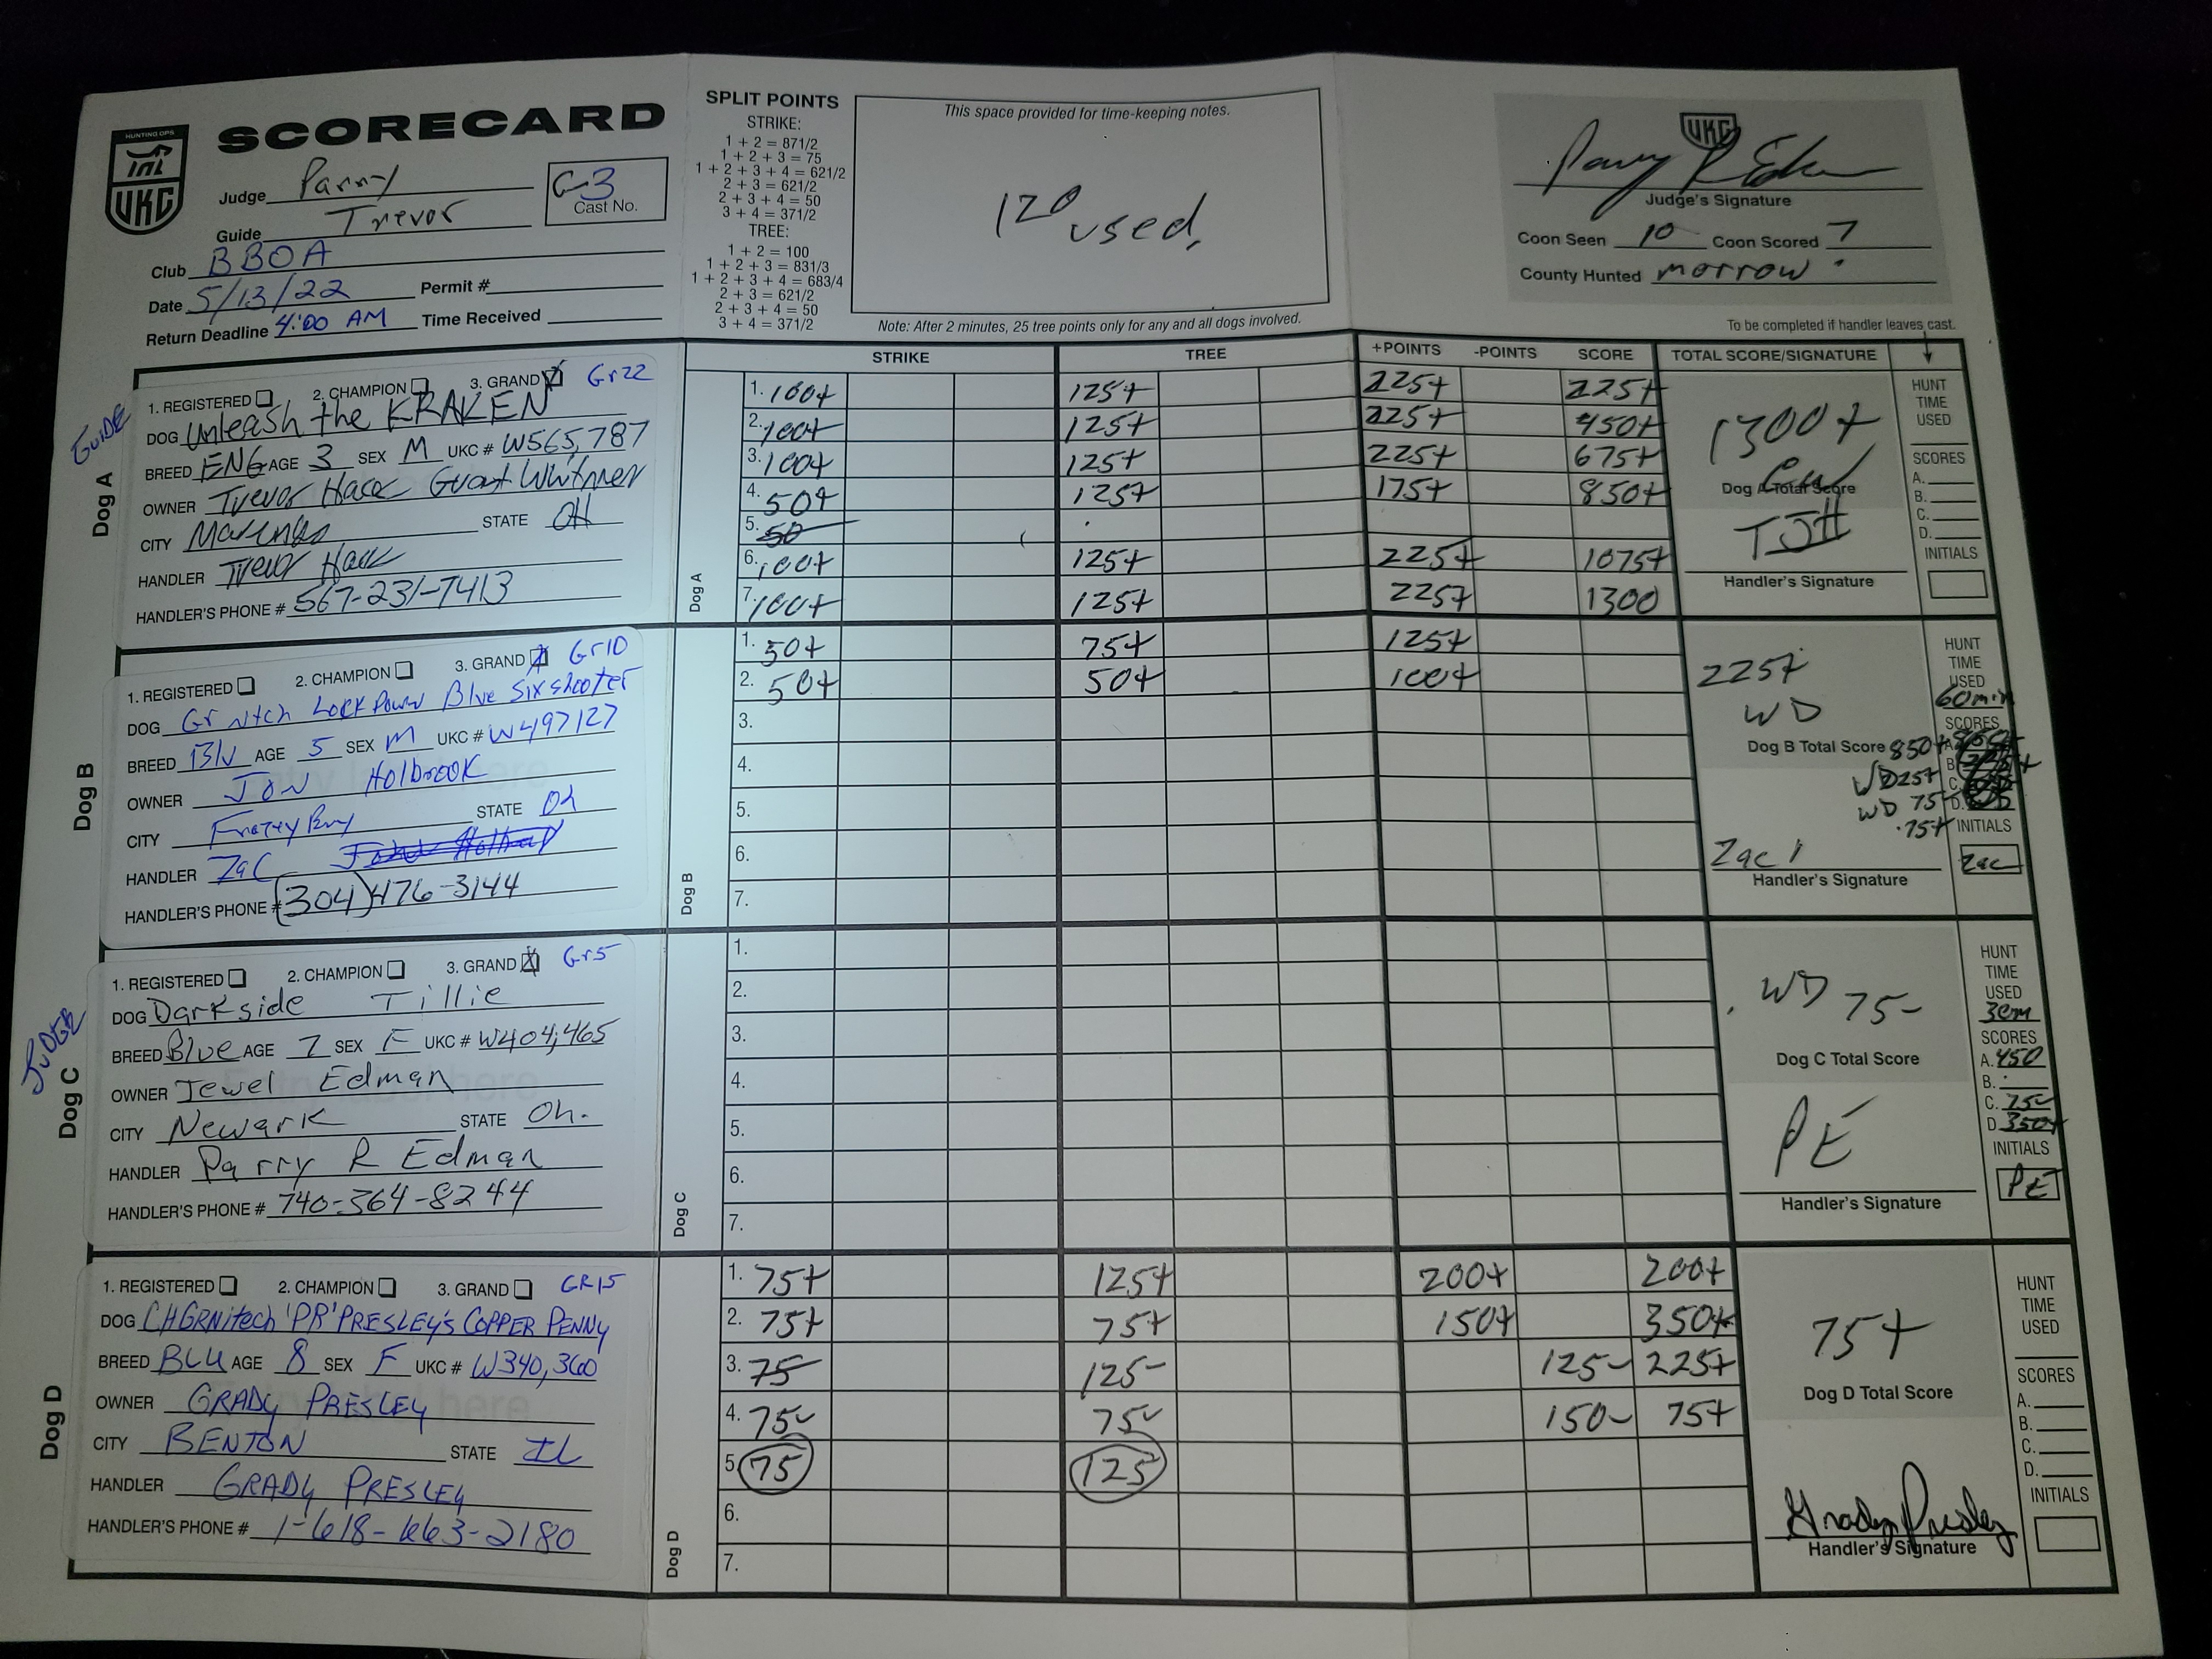 HUNTING OPS
UKC
SCORECARD
Judge Parry
G-3
Cast No.
Guide Trevor
Club BBOA
Date 5/13/22 Permit #
Return Deadline 4:00 AM Time Received
SPLIT POINTS
STRIKE:
1 + 2 = 871/2
1 + 2 + 3 = 75
1 + 2 + 3 + 4 = 621/2
2 + 3 = 621/2
2 + 3 + 4 = 50
3 + 4 = 371/2
TREE:
1 + 2 = 100
1 + 2 + 3 = 831/3
1 + 2 + 3 + 4 = 683/4
2 + 3 = 621/2
2 + 3 + 4 = 50
3 + 4 = 371/2
This space provided for time-keeping notes.
120 used,
Note: After 2 minutes, 25 tree points only for any and all dogs involved.
UKC
Parry R Edman
Judge's Signature
Coon Seen 10 Coon Scored 7
County Hunted morrow
To be completed if handler leaves cast.
STRIKE TREE +POINTS -POINTS SCORE TOTAL SCORE/SIGNATURE
GUIDE
Dog A
1. REGISTERED 2. CHAMPION 3. GRAND X Gr22
DOG Unleash the KRAKEN
BREED ENG AGE 3 SEX M UKC # W565,787
OWNER Trevor Hack Grant Whitmer
CITY Marengo STATE OH
HANDLER Trevor Hack
HANDLER'S PHONE # 567-231-7413
Dog A
1. 100+ 125+ 225+ 225+
2. 100+ 125+ 225+ 450+
3. 100+ 125+ 225+ 675+
4. 50+ 125+ 175+ 850+
5. 50
6. 100+ 125+ 225+ 1075+
7. 100+ 125+ 225+ 1300
1300+
GW
Dog A Total Score
TJH
Handler's Signature
HUNT
TIME
USED
SCORES
A.
B.
C.
D.
INITIALS
Dog B
1. REGISTERED 2. CHAMPION 3. GRAND X Gr10
DOG Gr Nitch Lock Down Blue Sixshooter
BREED Blu AGE 5 SEX M UKC # W497127
OWNER JON Holbrook
CITY STATE Oh
HANDLER Zac
HANDLER'S PHONE # (304) 476-3144
Dog B
1. 50+ 75+ 125+
2. 50+ 50+ 100+
3.
4.
5.
6.
7.
225+
WD
Dog B Total Score
Zac
Handler's Signature
HUNT
TIME
USED
60 min
SCORES
850+
WD 225+
WD 75-
75+
INITIALS
Zac
JUDGE
Dog C
1. REGISTERED 2. CHAMPION 3. GRAND X Gr5
DOG Darkside Tillie
BREED Blue AGE 7 SEX F UKC # W404,465
OWNER Jewel Edman
CITY Newark STATE Oh.
HANDLER Parry R Edman
HANDLER'S PHONE # 740-364-8244
Dog C
1.
2.
3.
4.
5.
6.
7.
WD 75-
Dog C Total Score
PE
Handler's Signature
HUNT
TIME
USED
30m
SCORES
A. 450
B.
C. 75-
D. 350+
INITIALS
PE
Dog D
1. REGISTERED 2. CHAMPION 3. GRAND GR15
DOG CHGRNitech 'PR' PRESLEY'S COPPER PENNY
BREED BLU AGE 8 SEX F UKC # W340,360
OWNER GRADY PRESLEY
CITY BENTON STATE IL
HANDLER GRADY PRESLEY
HANDLER'S PHONE # 1-618-663-2180
Dog D
1. 75+ 125+ 200+ 200+
2. 75+ 75+ 150+ 350+
3. 75 125- 125- 225+
4. 75- 75- 150- 75+
5. 75 125
6.
7.
75+
Dog D Total Score
Grady Presley
Handler's Signature
HUNT
TIME
USED
SCORES
A.
B.
C.
D.
INITIALS